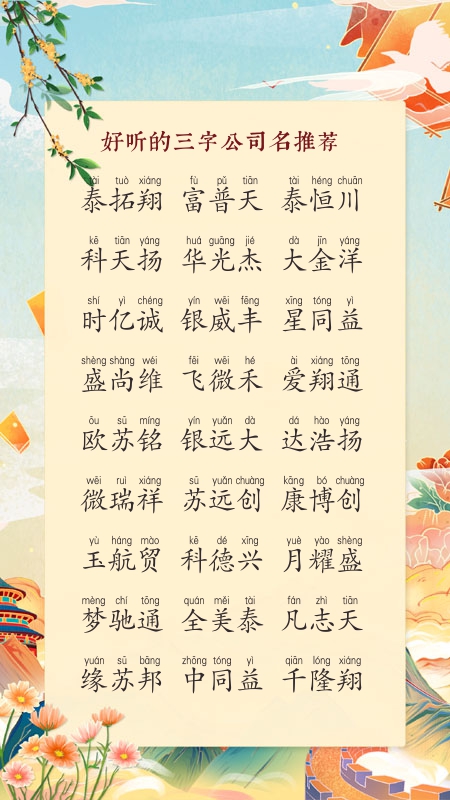 好听的三字公司名推荐
tài tuò xiáng fù pǔ tiān tài héng chuān
泰拓翔 富普天 泰恒川
kē tiān yáng huá guāng jié dà jīn yáng
科天扬 华光杰 大金洋
shí yì chéng yín wēi fēng xīng tóng yì
时亿诚 银威丰 星同益
shèng shàng wéi fēi wēi hé ài xiáng tōng
盛尚维 飞微禾 爱翔通
ōu sū míng yín yuǎn dà dá hào yáng
欧苏铭 银远大 达浩扬
wēi ruì xiáng sū yuǎn chuàng kāng bó chuàng
微瑞祥 苏远创 康博创
yù háng mào kē dé xīng yuè yào shèng
玉航贸 科德兴 月耀盛
mèng chí tōng quán měi tài fán zhì tiān
梦驰通 全美泰 凡志天
yuán sū bāng zhōng tóng yì qiān lóng xiáng
缘苏邦 中同益 千隆翔